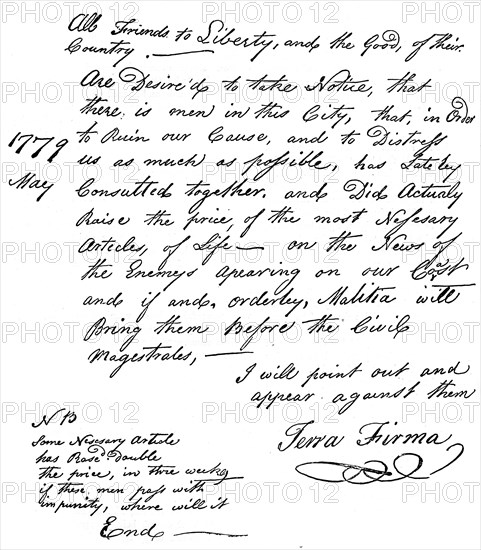 All Friends to Liberty, and the Good, of their
Country
Are Desire'd to take Notice, that
there is men in this City, that, in Order
to Ruin our Cause, and to Distress
us as much as possible, has Lateley
Consulted together. and Did Actualy
Raise the price, of the most Nesesary
Articles, of Life — on the News of
the Enemeys apearing on our Coast
and if and, orderley, Malitia will
Bring them Before the Civil
Magestrates, —
I will point out and
appear against them
Terra Firma
1779
May
NB
Some Nesesary Article
has Rased Double
the price, in three weeks
if these men pass with
impunity, where will it
End —
PHOTO 12